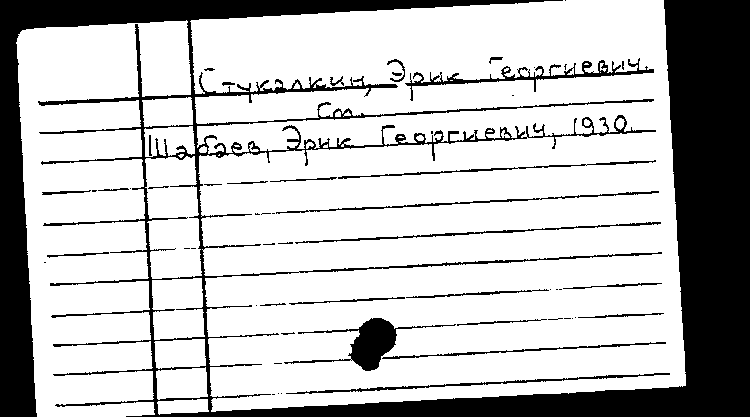 Стукалкин, Эрик Георгиевич.
См.
Шабаев, Эрик Георгиевич, 1930.